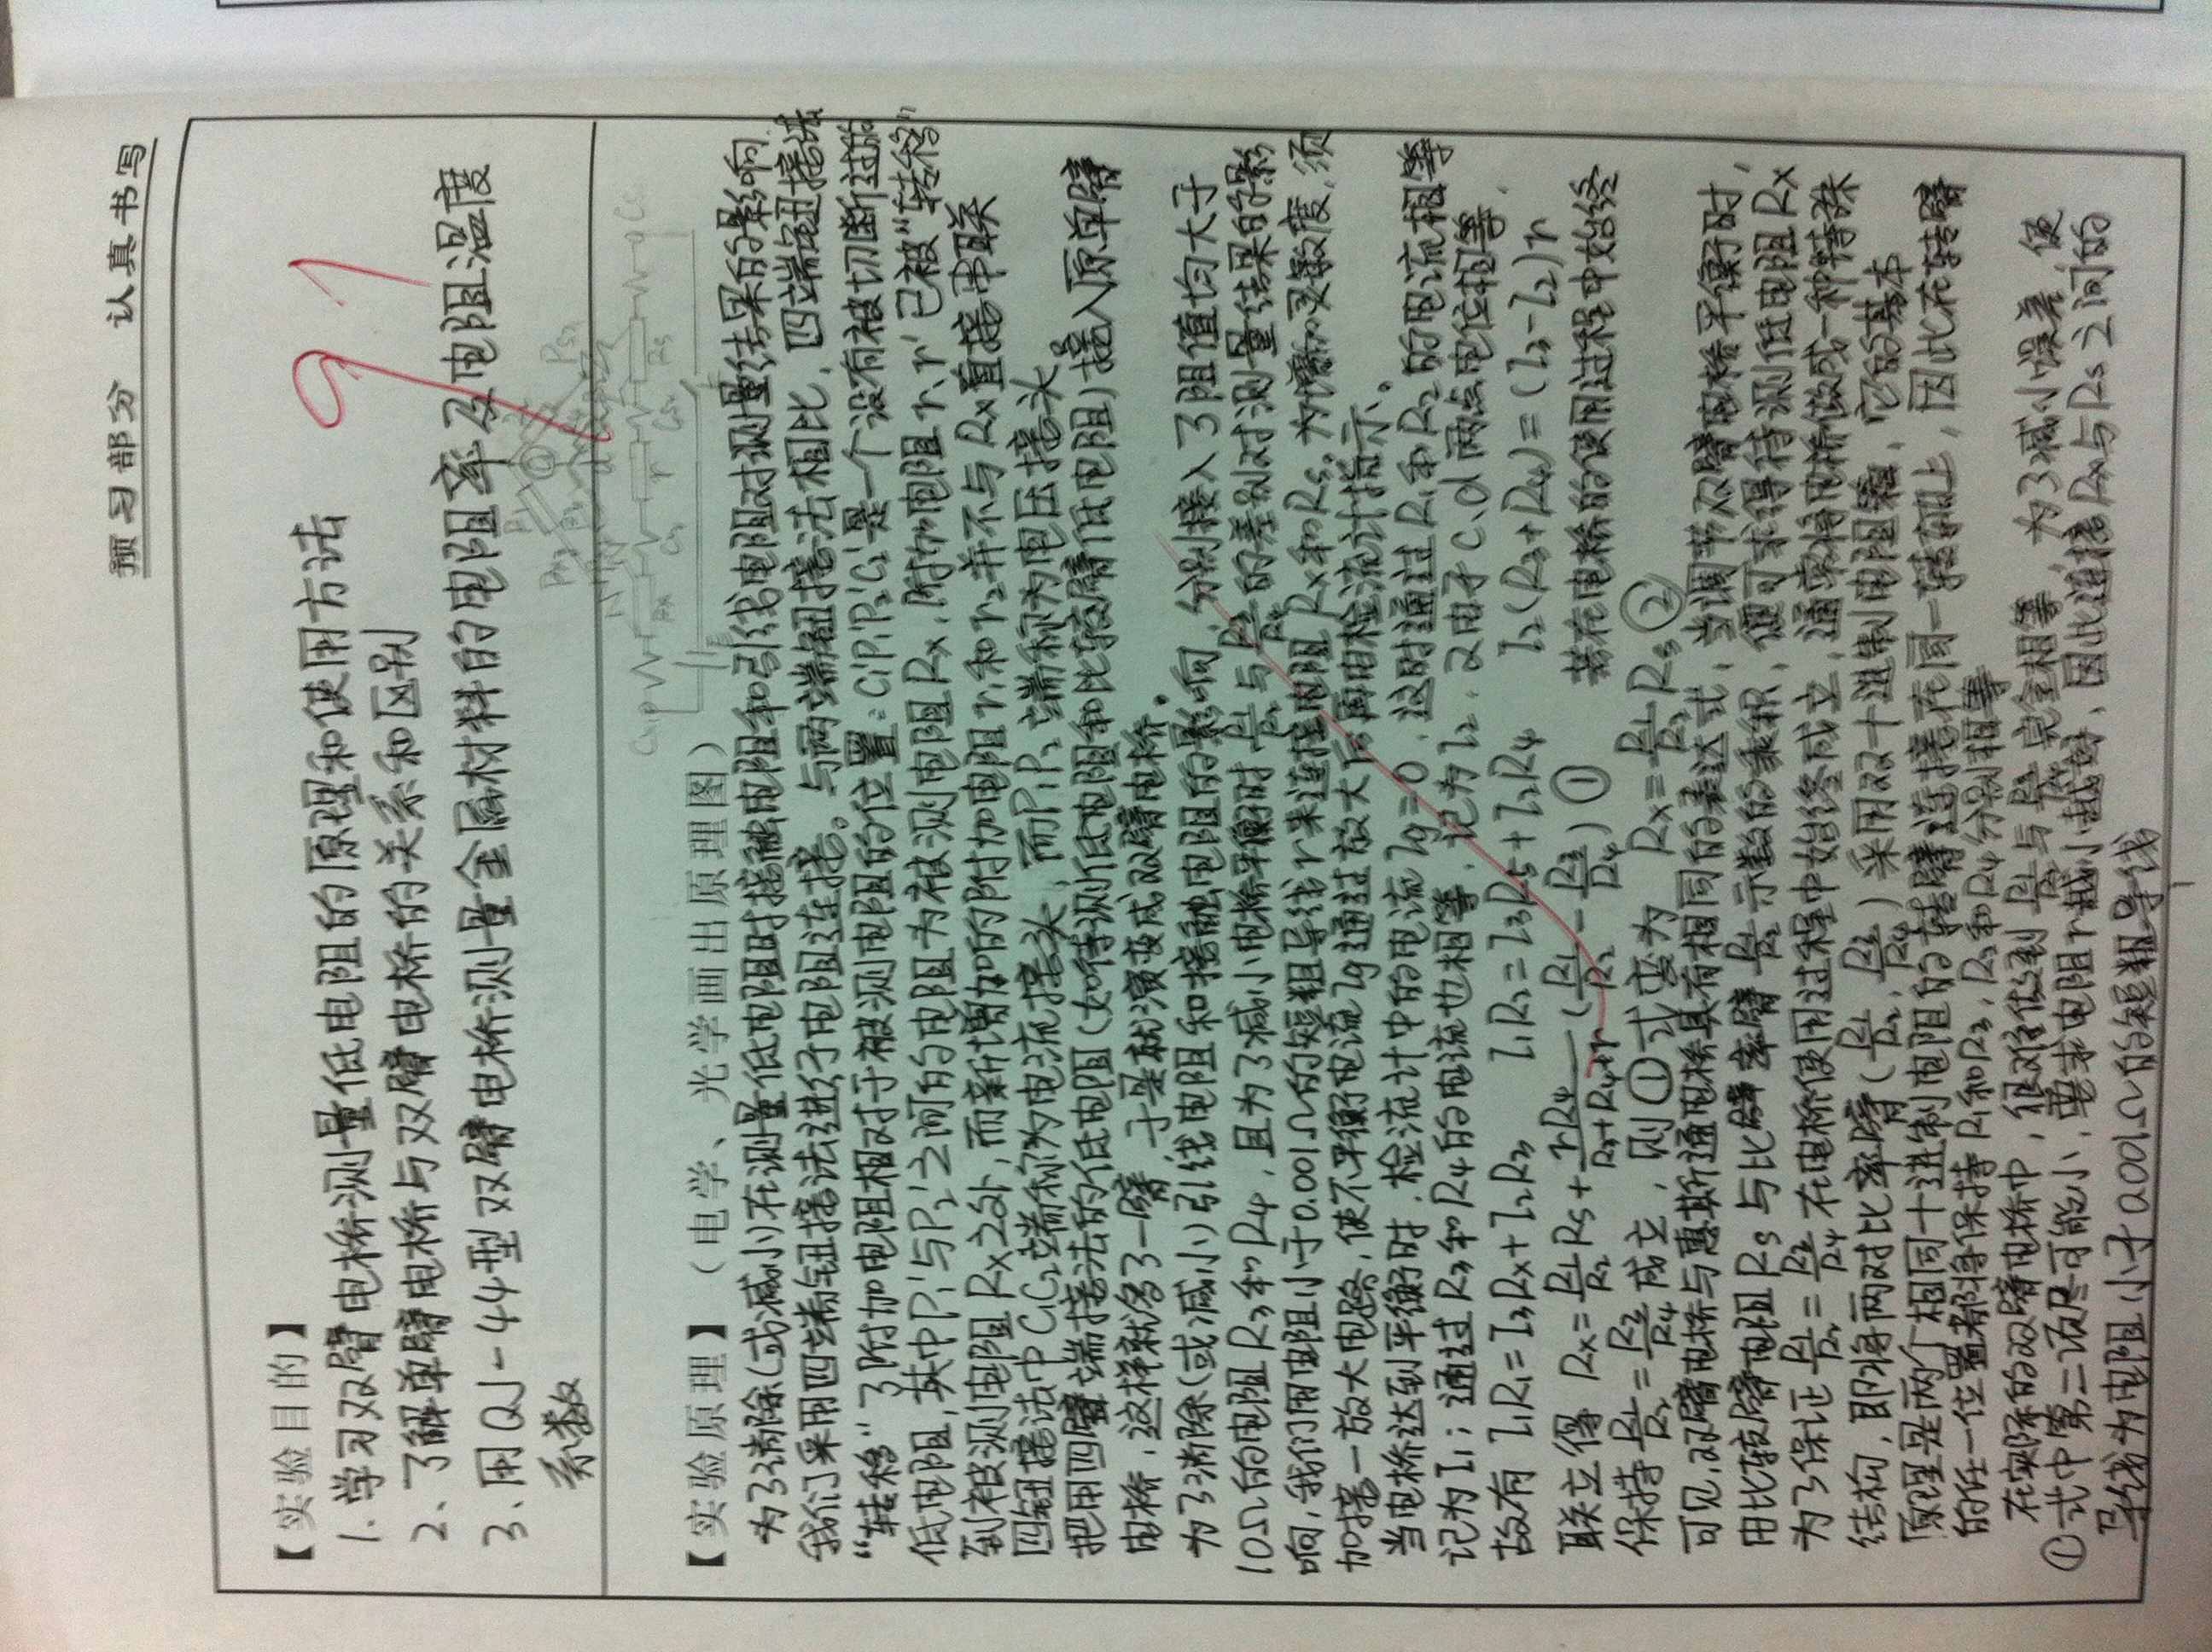 预习部分 认真书写
【实验目的】
91
1. 学习双臂电桥测量低电阻的原理和使用方法
2、了解单臂电桥与双臂电桥的关系和区别
3、用QJ-44型双臂电桥测量金属材料的电阻率及电阻温度
系数
【实验原理】（电学、光学画出原理图）
为了消除(或减小)在测量低电阻时接触电阻和引线电阻对测量结果的影响
我们采用四端钮接法进行电阻连接。与两端钮接法相比，四端钮接法
“转移”了附加电阻相对于被测电阻的位置：C1'P1'P2'C2'是一个没有被切断过的
低电阻，其中P1'与P2'之间的电阻为被测电阻Rx，附加电阻r、r'已被“转移”
到被测电阻Rx之外，而新增加的附加电阻r1和r2并不与Rx直接串联
四钮接法中C1C2端称为电流接头，而P1P2端称为电压接头。
把用四臂端接法的低电阻(如待测低电阻和比较臂低电阻)接入原单臂
电桥，这样就多了一臂，于是就演变成双臂电桥。
为了消除(或减小)引线电阻和接触电阻的影响，分别接入了阻值均大于
10Ω的电阻R3和R4，且为了减小电桥平衡时R1/R2与R3/R4的差别对测量结果的影
响，我们用电阻小于0.001Ω的短粗导线r来连接电阻Rx和Rs。为增加灵敏度，须
加接一放大电路，使不平衡电流Ig通过放大后再由检流计指示。
当电桥达到平衡时，检流计中的电流Ig=0，这时通过R1和R2的电流相等
记为I1；通过R3和R4的电流也相等，记为I2，又由于c、d两点电位相等，
故有 I1R1=I3Rx+I2R3 I1R2=I3Rs+I2R4 I2(R3+R4)=(I3-I2)r
联立得 Rx=R1/R2 Rs+rR4/(R3+R4+r)(R1/R2-R3/R4) ① 若在电桥的使用过程中始终
保持R1/R2=R3/R4成立，则①式变为 Rx=R1/R2 Rs ②
可见，双臂电桥与惠斯通电桥具有相同的表达式，当调节双臂电桥平衡时，
由比较臂电阻Rs与比率臂R1/R2示数的乘积，便可求得待测低电阻Rx
为了保证R1/R2=R3/R4在电桥使用过程中始终成立，通常将电桥做成一种特殊
结构，即将两对比率臂(R1/R2，R3/R4)采用双十进制电阻箱，它的基本
原理是两个相同十进制电阻的转臂连接在同一转轴上，因此在转臂
的任一位置都将保持R1和R3，R2和R4分别相等
在实际的双臂电桥中，很难做到R1/R2与R3/R4完全相等，为了减小误差，使
①式中第二项尽可能小，要求电阻r越小越好，因此连接Rx与Rs之间的
导线为电阻小于0.001Ω的短粗导线
1